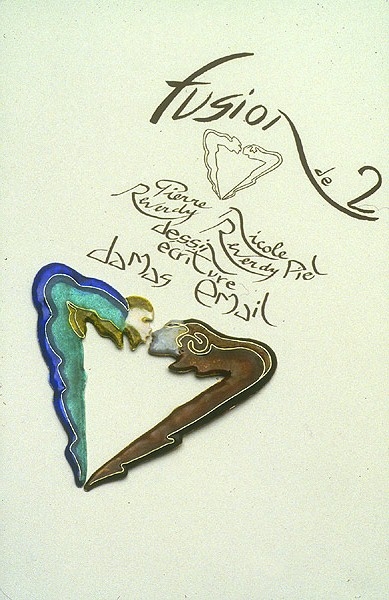 Fusion
de 2
Pierre Nicole
Reverdy Reverdy Piel
dessin
ecriture
damas email